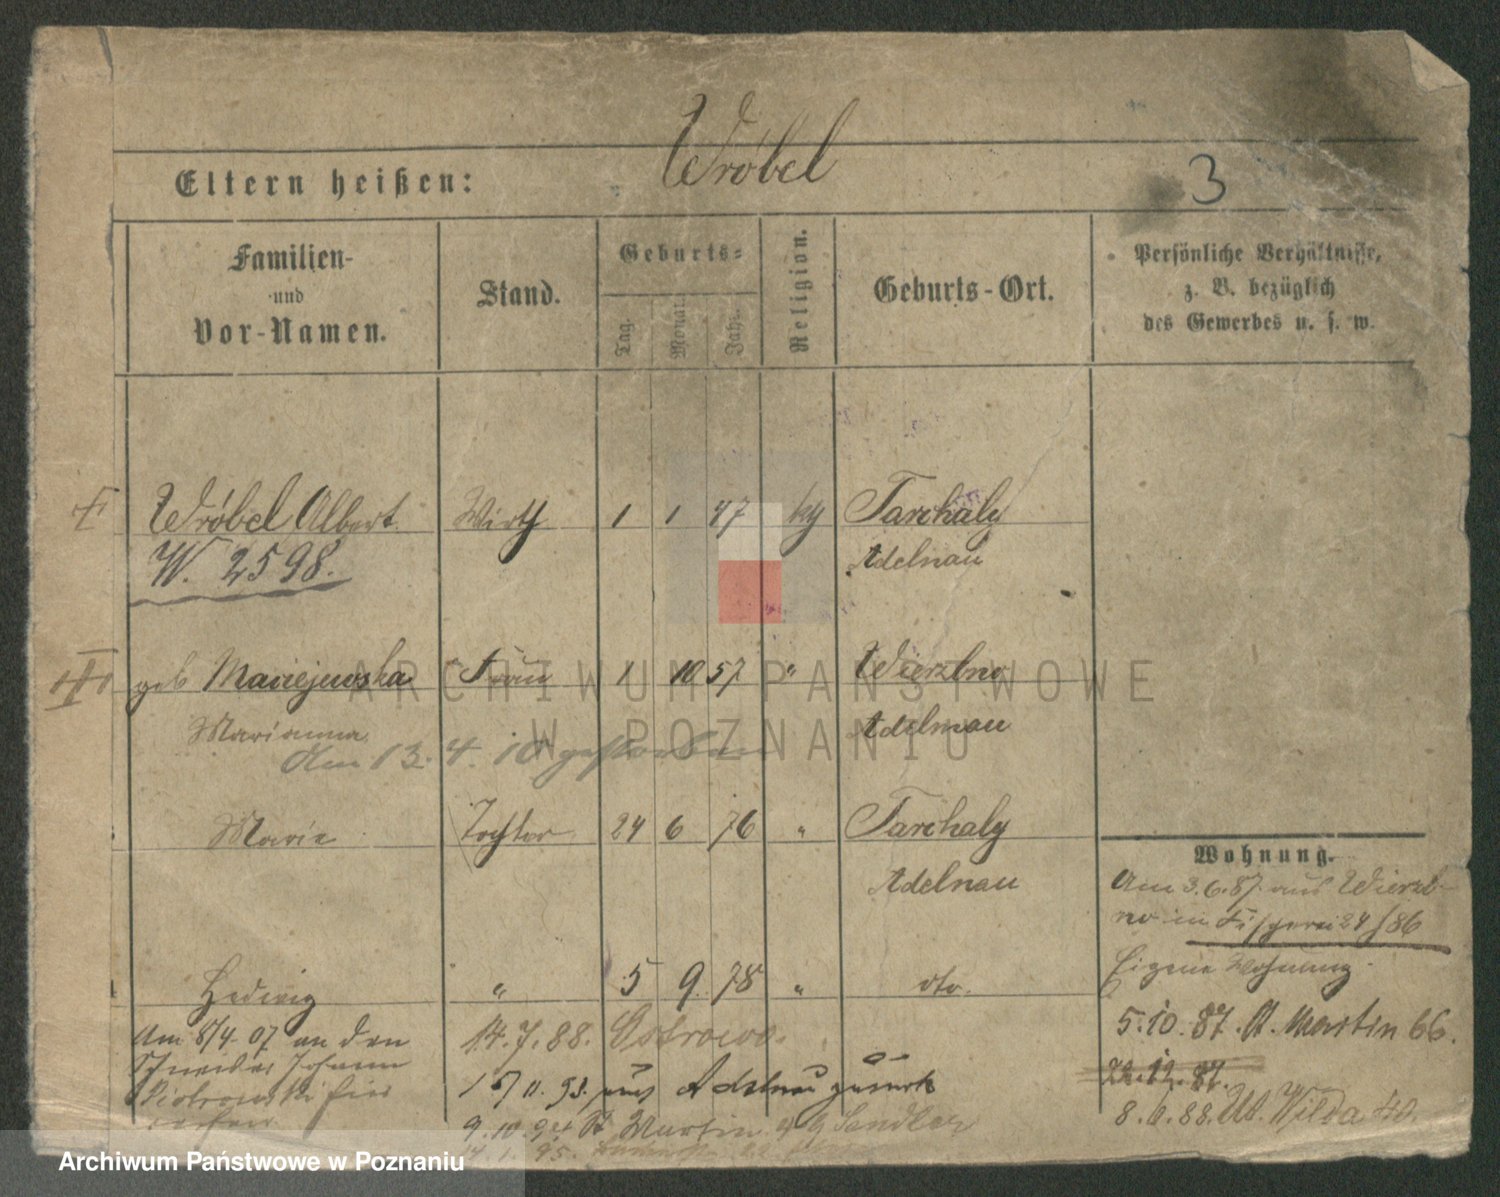 Wróbel
3
Eltern heißen:
Familien-
und
Vor-Namen.
Stand.
Geburts-
Tag.
Monat.
Jahr.
Religion.
Geburts-Ort.
Persönliche Verhältnisse,
z. B. bezüglich
des Gewerbes u. s. w.
I Wróbel Albert Wirth 1 1 47 kg Tarchaly
W. 2598. Adelnau
II geb Maciejewska Frau 1 10 57 " Wierzbno
Marianna Adelnau
den 13. 4. 10 gestorben
Marie Tochter 24 6 76 " Tarchaly
Adelnau
Wohnung.
Am 3.6.87. aus Wierzb-
no in Fischerei 24/86
Eigene Wohnung.
Hedwig " 5 9. 78 " dto.
Am 8/4. 07 an den
Schneider Johann
Piotrowski hier
14. 7. 88. Ostrowo.
11. 93. aus Adelnau zurück
9. 10. 94 St Martin Sandler
95.
5. 10. 87. St. Martin 66.
22. 12. 87.
8. 6. 88. Ub. Wilda
ARCHIWUM PAŃSTWOWE
W POZNANIU
Archiwum Państwowe w Poznaniu